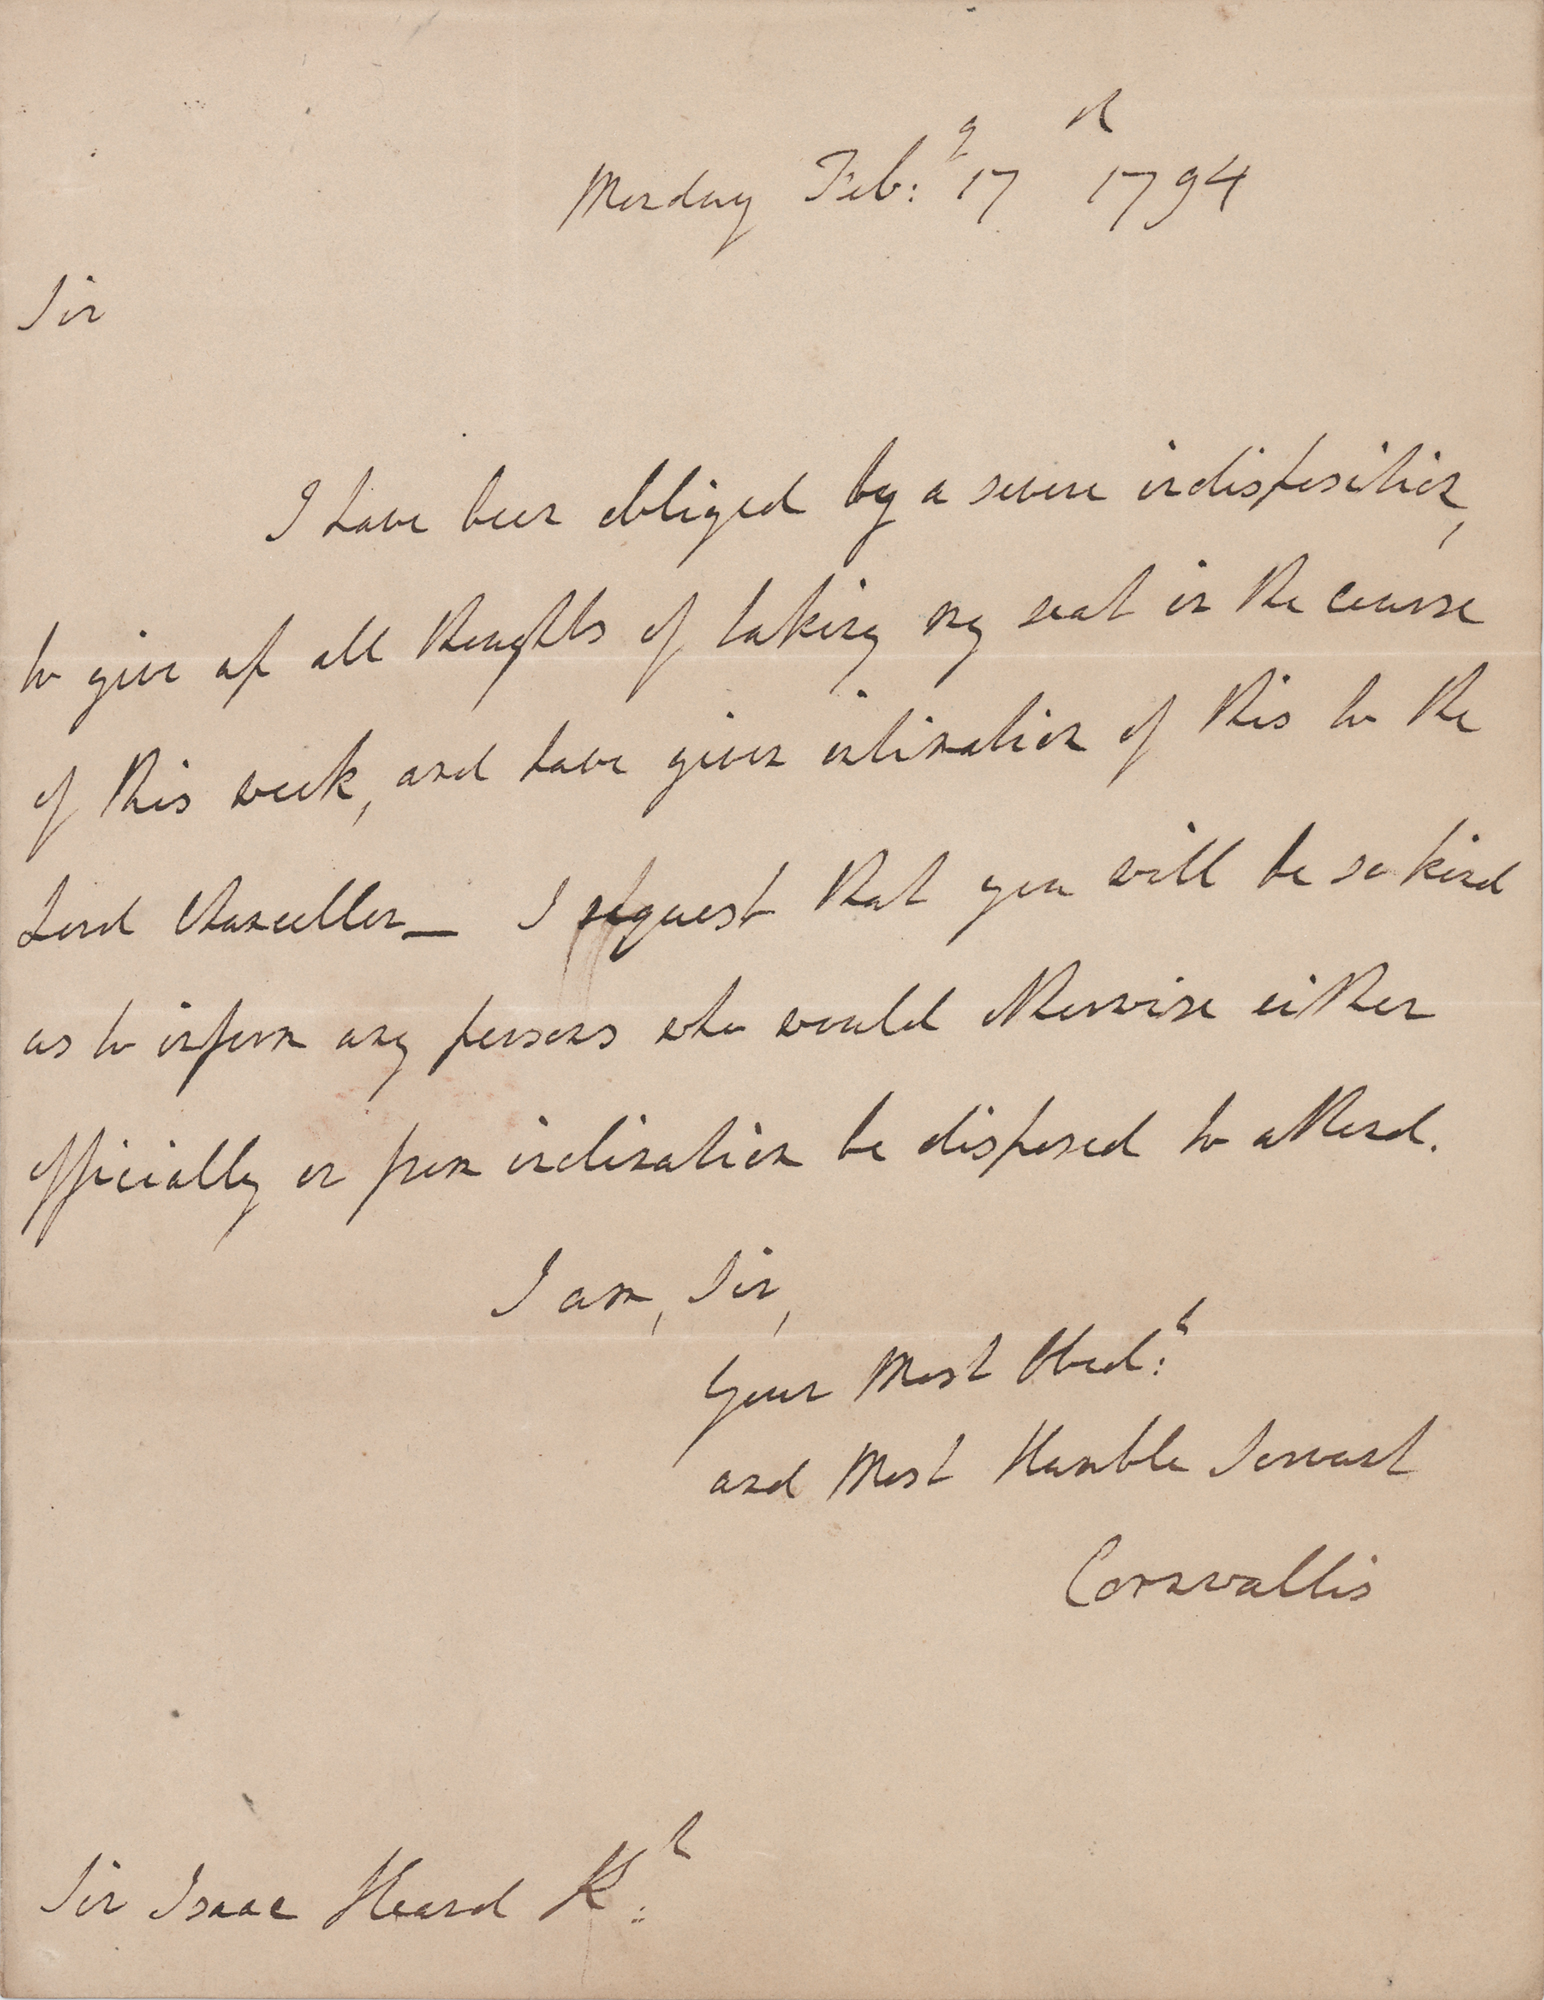 Monday Feb:y 17th 1794
Sir
I have been obliged by a severe indisposition,
to give up all thoughts of taking my seat in the course
of this week, and have given intimation of this to the
Lord Chancellor_ I request that you will be so kind
as to inform any persons who would otherwise either
officially or from inclination be disposed to attend.
I am, Sir,
Your Most Obed:t
and Most Humble Servant
Cornwallis
Sir Isaac Heard K:t